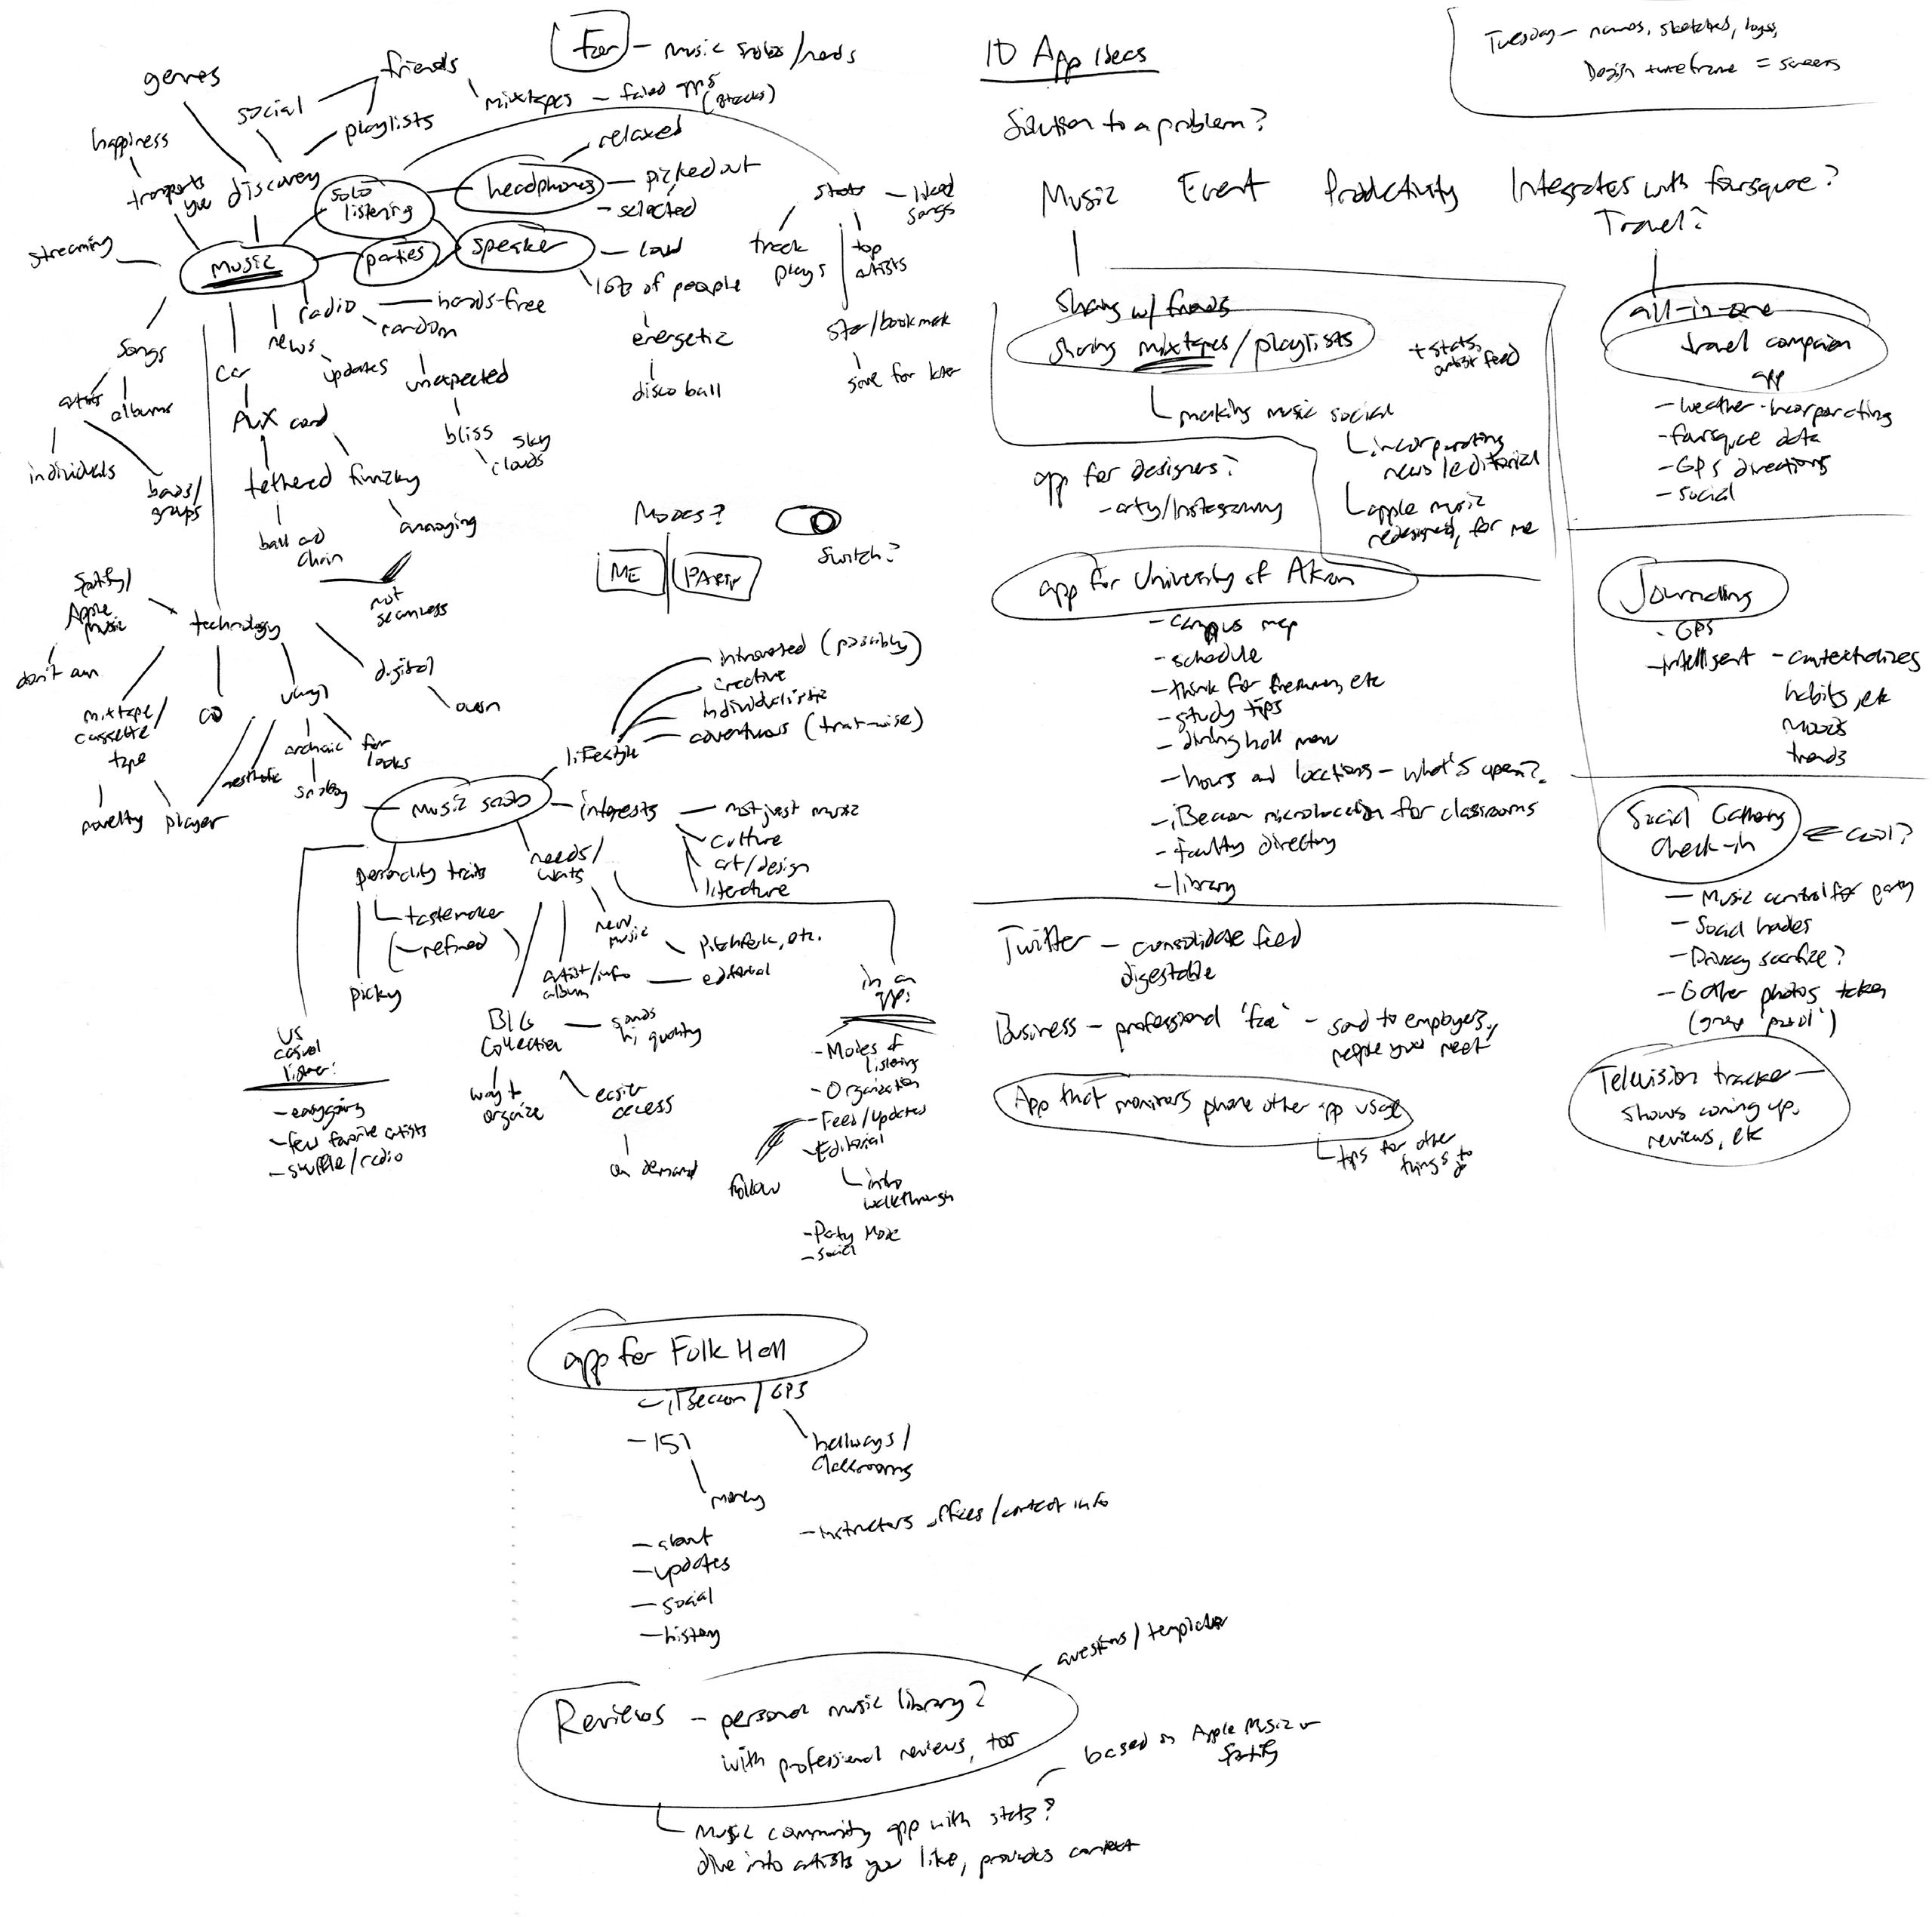 For – music snobs/nerds
genres
friends
social
mixtapes – failed apps
(8tracks)
playlists
happiness
relaxed
transports
you
discovery
solo
listening
headphones – picked out
– selected
stats – liked
songs
streaming
music
parties
speaker – loud
track
plays
top
artists
lots of people
radio – hands-free
random
news
updates
unexpected
energetic
star/bookmark
songs
car
disco ball
save for later
albums
AUX cord
bliss
sky
clouds
individuals
bands/
groups
tethered
finicky
ball and
chain
annoying
not
seamless
Modes?
ME
PARTY
Switch?
Spotify/
Apple
Music
technology
don't own
digital
own
mixtape/
cassette
tape
CD
vinyl
archaic
for
looks
aesthetic
snobby
novelty
player
introverted (possibly)
creative
individualistic
adventurous (trait-wise)
lifestyle
music snob
interests – not just music
culture
art/design
literature
personality traits
tastemaker
(– refined)
picky
needs/
wants
new
music
Pitchfork, etc.
artist/info
album
– editorial
BIG
collection
– sounds
hi quality
way to
organize
easier
access
on demand
vs
casual
listener:
– easygoing
– few favorite artists
– shuffle/radio
in an
app:
– Modes of
listening
– Organization
– Feed/updates
– Editorial
intro
walkthrough
follow
– Party Mode
– social
10 App Ideas
Solution to a problem?
Tuesday – names, sketches, logos,
Design timeframe = screens
Music
Event
Productivity
Integrates with foursquare?
Travel?
sharing w/ friends
sharing mixtapes/playlists
+ stats,
artist feed
making music social
incorporating
news/editorial
apple music
redesigned, for me
app for designers?
– arty/Instagrammy
app for University of Akron
– campus map
– schedule
– think for freshmen, etc
– study tips
– dining hall menu
– hours and locations – what's open?
– iBeacon microlocation for classrooms
– faculty directory
– library
Twitter – consolidate feed
digestable
Business – professional 'face' – send to employers,
people you meet
App that monitors phone other app usage
tips for other
things to
do
all-in-one
travel companion
app
– weather-incorporating
– foursquare data
– GPS directions
– social
Journaling
- GPS
– intelligent – contextualizes
habits, etc
moods
trends
Social Gathering
Check-in
cool?
– Music control for party
– Social
– Privacy sacrifice?
– Gather photos taken
(group 'pool')
Television tracker –
shows coming up,
reviews, etc
app for Folk Hall
– iBeacon / GPS
hallways/
classrooms
– 151
money
– about
– updates
– social
– history
– instructors offices/contact info
Reviews – personal music library?
with professional reviews, too
questions/templates
based on Apple Music or
Spotify
Music community app with stats?
dive into artists you like, provides context